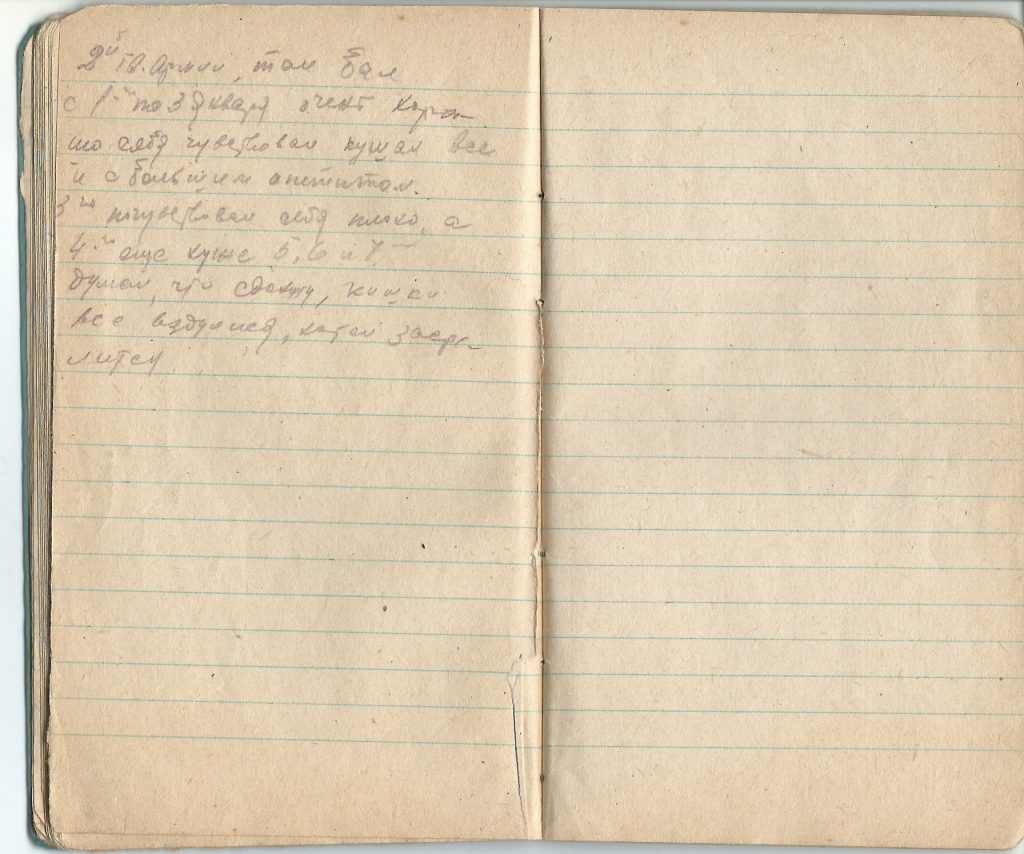 2й гв. Армии, там был
с 1-го по 3 января очень хоро-
шо себя чувствовал кушал все
и с большим апетитом.
3го почувствовал себя плохо, а
4-го еще хуже 5, 6 и 7
думал, что сдохну, кишки
все вздулися, хотел застре-
литься